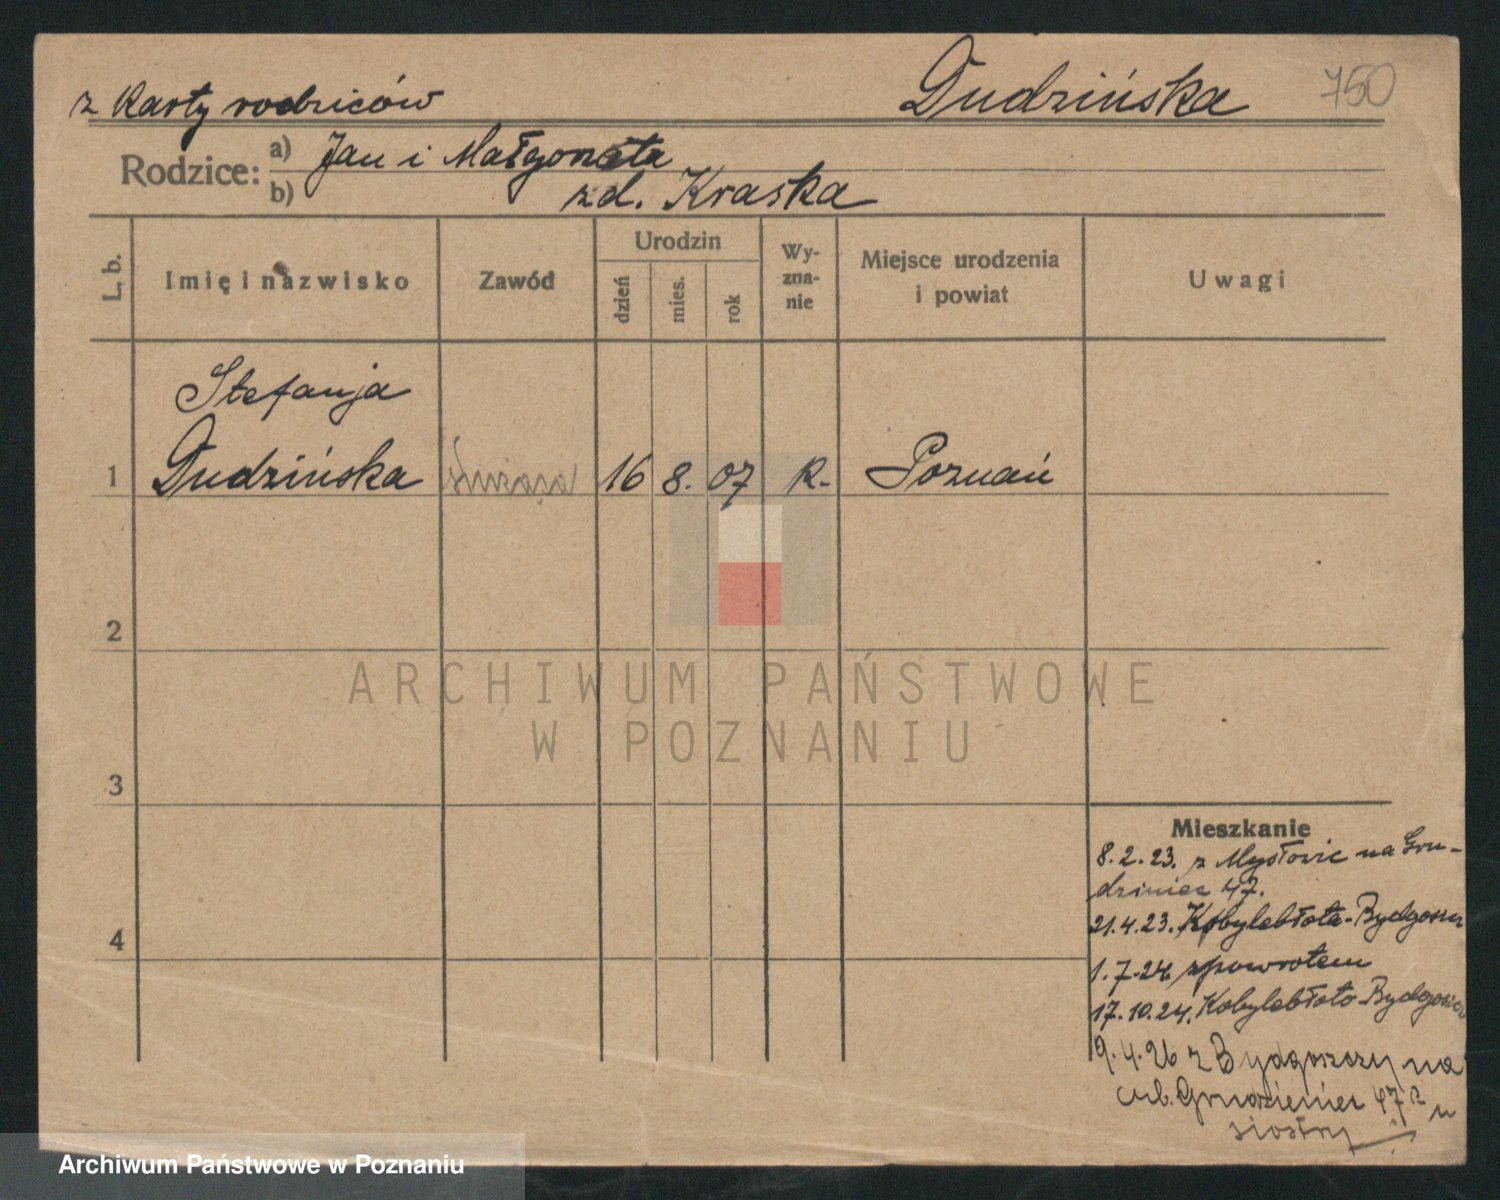 z Karty rodziców
Dudzińska
750
Rodzice:
a) Jan i Małgorzata
b) zd. Kraska
L. b.
Imię i nazwisko
Zawód
Urodzin
dzień
mies.
rok
Wy-
zna-
nie
Miejsce urodzenia
i powiat
Uwagi
Stefanja
1 Dudzińska służąca 16 8. 07 R. Poznań
2
3
4
Mieszkanie
8.2.23. z Mysłowic na Gru-
dzieniec 47.
21.4.23. Kobylebłota-Bydgoszcz
1.7.24. zpowrotem
17.10.24. Kobylebłoto-Bydgoszcz
9.4.26 z Bydgoszczy na
Grudzieniec 47 u
siostry
ARCHIWUM PAŃSTWOWE
W POZNANIU
Archiwum Państwowe w Poznaniu